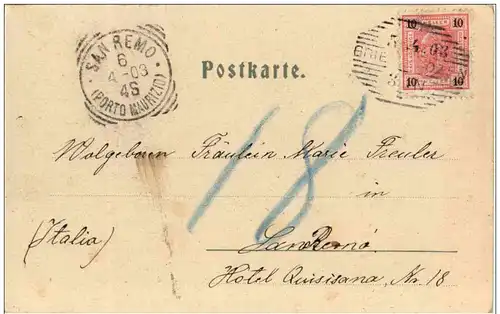 SAN REMO
6
4-03
4S
(PORTO MAURIZIO)
Postkarte.
10 10
4.03
10 10
18
Wolgeborn Fräulein Marie Freuler
in
(Italia) San Remo
Hotel Quisisana, Nr. 18